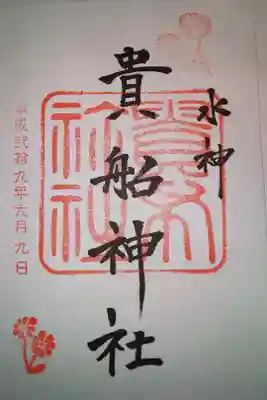 水神
貴船神社
平成弐拾九年六月九日